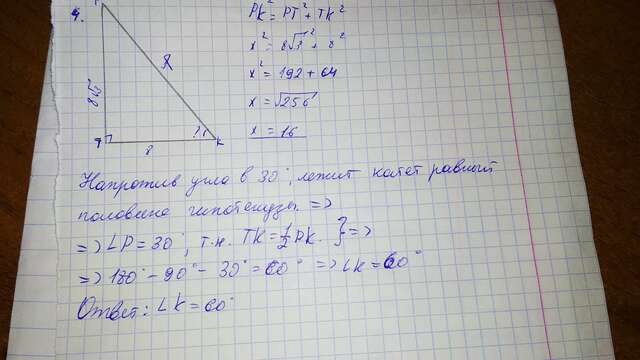 4.
PK² = PT² + TK²
x² = 8√3² + 8²
x² = 192 + 64
x = √256
x = 16
8√3
x
T
8
?
K
Напротив угла в 30°, лежит катет равный
половине гипотенузы =>
=> ∠P = 30°, т.к. TK = 1/2 PK. } =>
=> 180° - 90° - 30° = 60° => ∠K = 60°
Ответ: ∠K = 60°